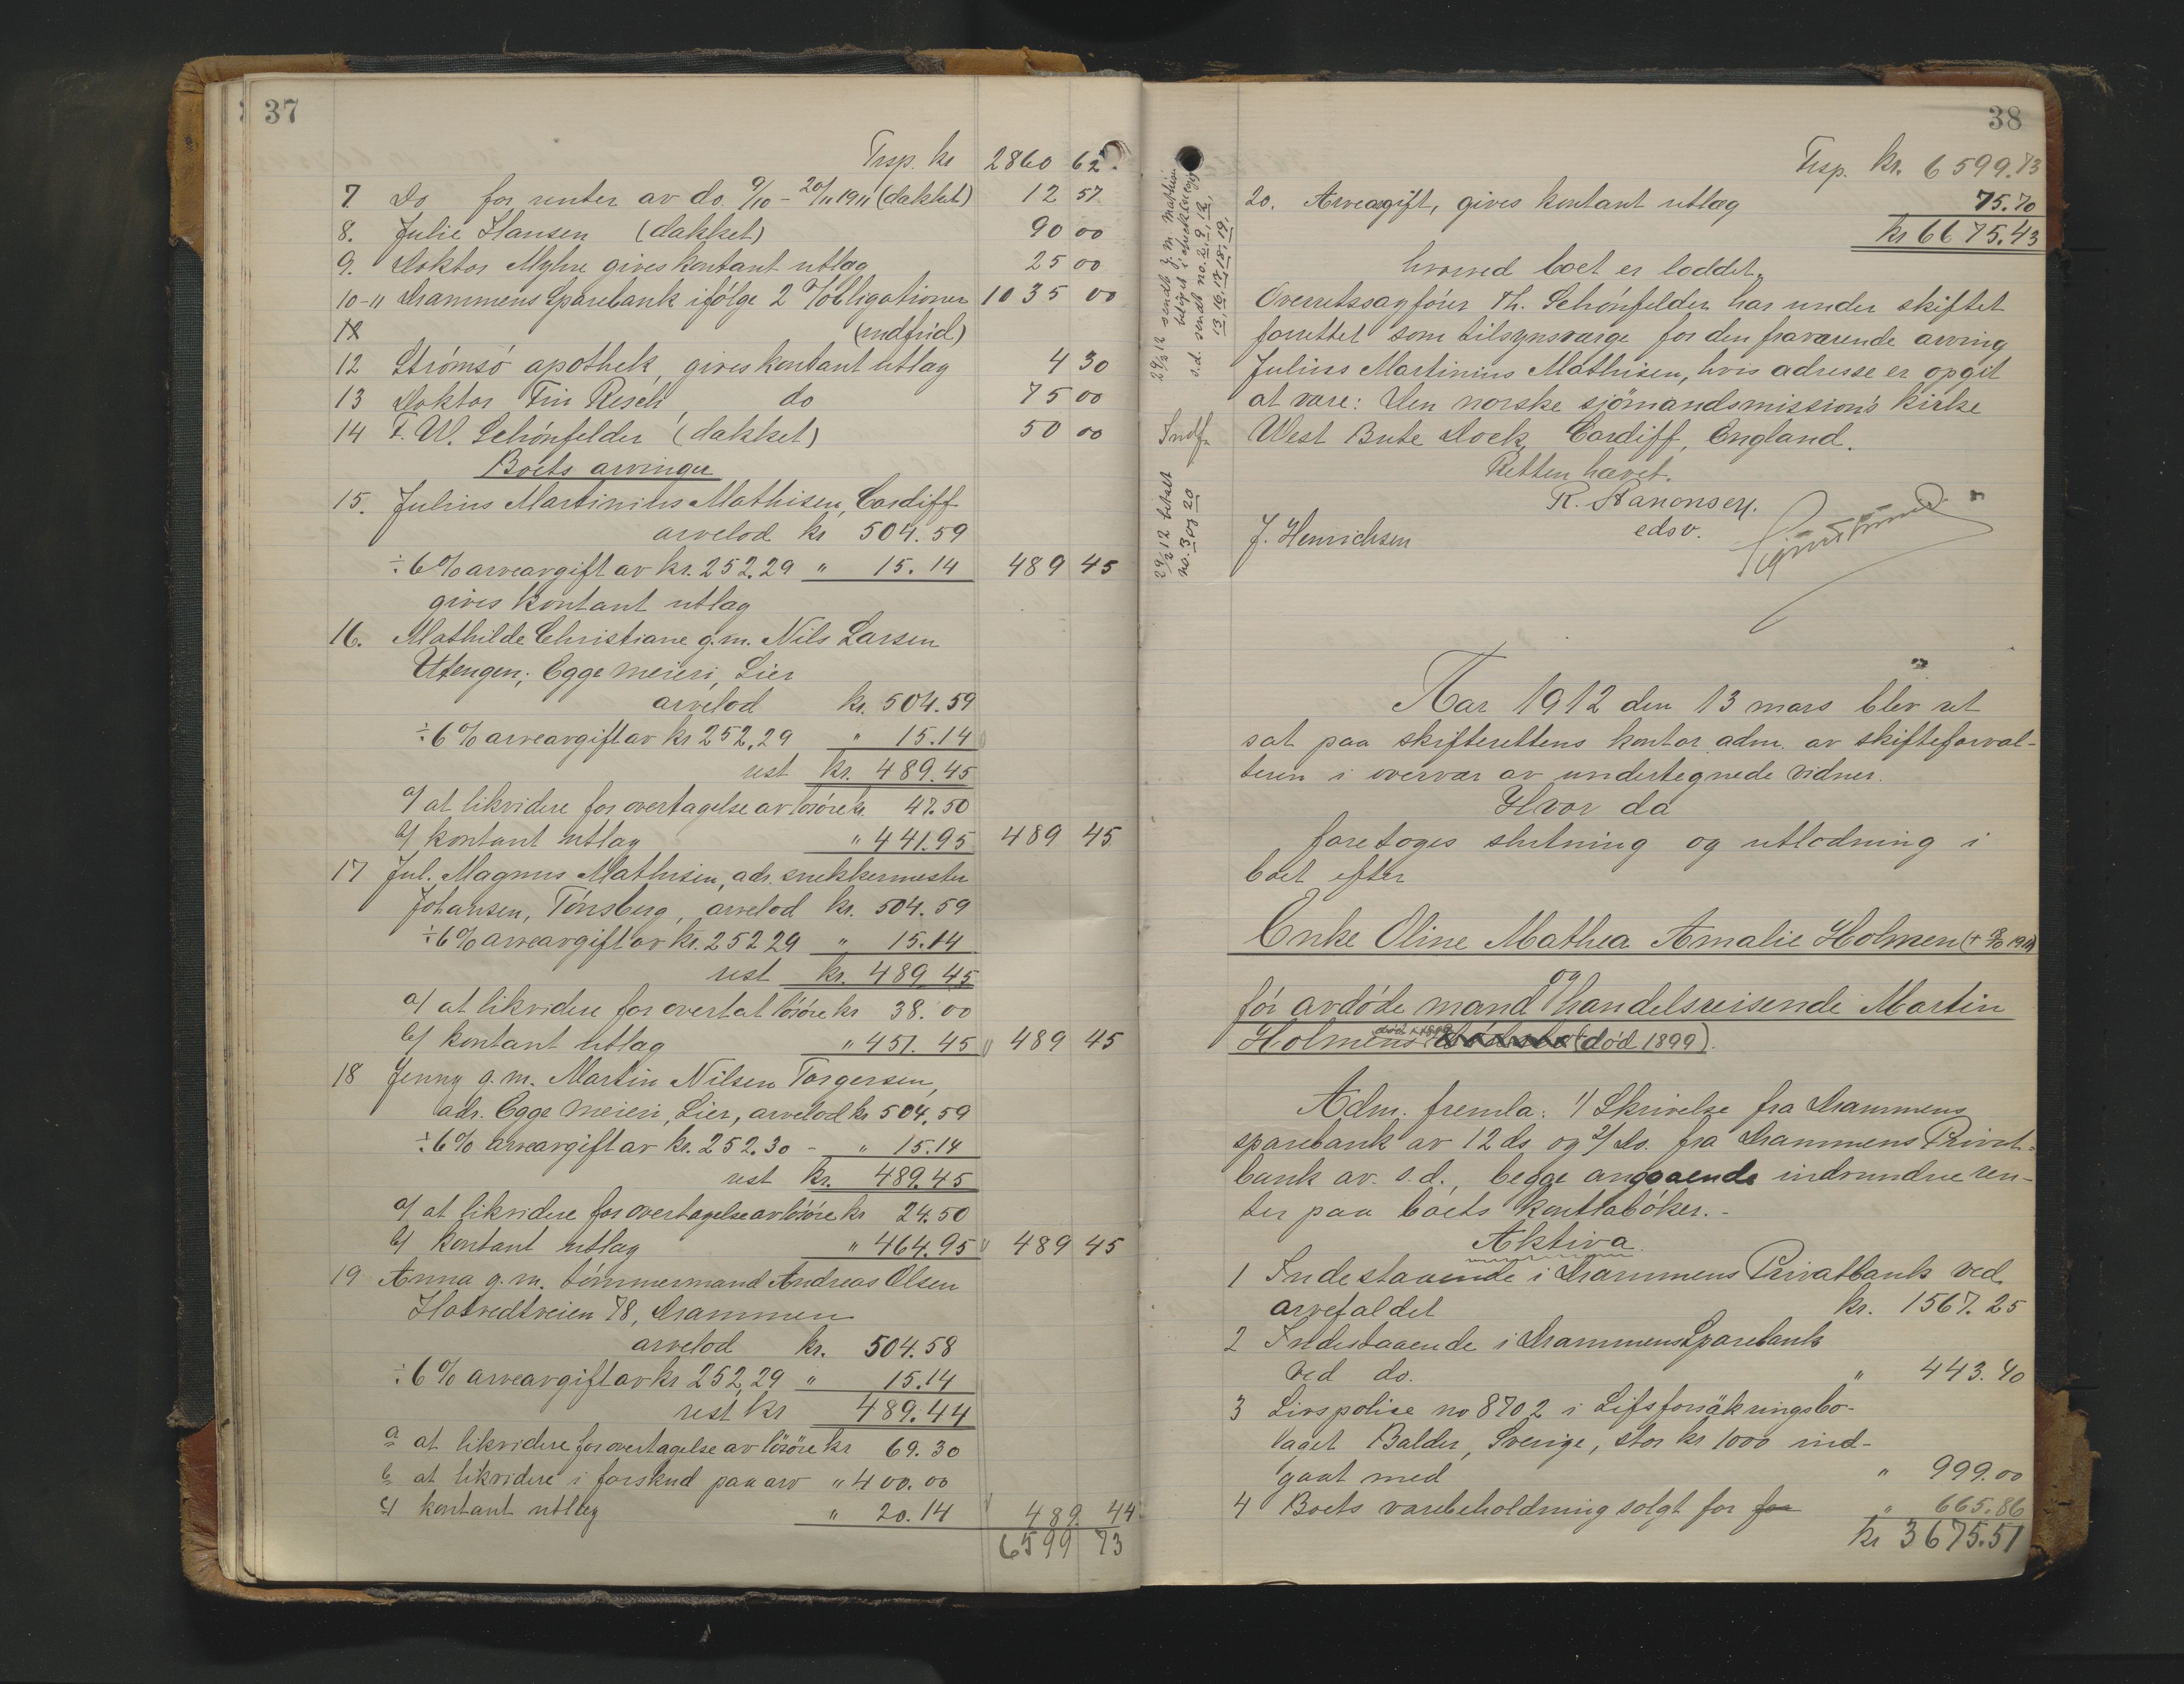 37
Trsp. kr 2860 62
7 Do for renter av do. 9/10 - 20/11 1911 (dækket) 12 57
8. Julie Hansen (dækket) 90 00
9. Doktor Myhre gives kontant utlæg 25 00
10-11 Drammens Sparebank ifølge 2 %obligationer 1035 00
(indfrid)
12 Strømsø apothek, gives kontant utlæg 4 30
13 Doktor Fin Resch do 75 00
14 F. W. Schønfelder (dækket) 50 00
Boets arvinger
15. Julius Martinius Mathisen, Cardiff
arvelod kr 504.59
÷ 6% arveavgift av kr. 252.29 " 15.14 489 45
gives kontant utlæg
16. Mathilde Christiane g.m. Nils Larsen
Utengen, Egge meieri, Lier
arvelod kr. 504.59
÷ 6% arveavgift av kr 252,29 " 15.14
rest kr. 489.45
a/ at likvidere for overtagelse av løsøre kr. 47.50
b/ kontant utlæg " 441.95 489 45
17 Jul. Magnus Mathisen, adr. snekkermester
Johansen, Tønsberg, arvelod kr. 504.59
÷ 6% arveavgift av kr. 252 29 " 15.14
rest kr. 489 45
a/ at likvidere for overtat løsøre kr 38.00
b/ kontant utlæg " 451.45 489 45
18 Jenny g.m. Martin Nilsen Torgersen,
adr. Egge meieri, Lier, arvelod kr 504,59
÷ 6% arveavgift av kr. 252.30 - " 15.14
rest kr. 489.45
a/ at likvidere for overtagelse av løsøre kr 24.50
b/ kontant utlæg " 464.95 489 45
19 Anna g.m. tømmermand Andreas Olsen
Hotvedtveien 78, Drammen
arvelod kr. 504.58
÷ 6% arveavgift av kr 252,29 " 15.14
rest kr 489.44
a at likvidere for overtagelse av løsøre kr 69.30
b at likvidere i forskud paa arv " 400.00
c/ kontant utlæg " 20.14 489 44
6599 73
38
Trsp. kr. 6599.73
20. Arveavgift, gives kontant utlæg 75.70
kr 6675.43
hvorved boet er loddet.
Overretssagfører Th. Schønfelder har under skiftet
forrettet som tilsynsværge for den fraværende arving
Julius Martinius Mathisen, hvis adresse er opgit
at være: Den norske sjömandsmission's kirke
West Bute Dock, Cardiff, England.
Retten hævet.
edsv.
J. Henrichsen
29/2 12 betalt
no. 3 og 20
s.d. sendt no. 2, 9, 12,
13, 16, 17, 18, 19,
Aar 1912 den 13 mars blev ret
sat paa skifterettens kontor adm. av skifteforval-
teren i overvær av undertegnede vidner.
Hvor da
foretoges slutning og utlodning i
boet efter
Enke Oline Mathea Amalie Holmen
og
før avdøde mand handelsreisende Martin
Holmens (død 1899).
Adm. fremla: 1/ Skrivelse fra Drammens
sparebank av 12 ds og 2/ Do. fra Drammens Privat-
bank av s.d., begge angaaende indvundne ren-
ter paa boets kontrabøker.-
Aktiva
1 Indestaaende i Drammens Privatbank ved
arvefaldet kr. 1567.25
2 Indestaaende i Drammens Sparebank
ved do. " 443.40
3 Livspolise no 8702 i Lifsforsäkringsbo-
laget Balder, Sverige, stor kr 1000 ind-
gaat med " 999.00
4 Boets varebeholdning solgt for for " 665.86
kr 3675.51